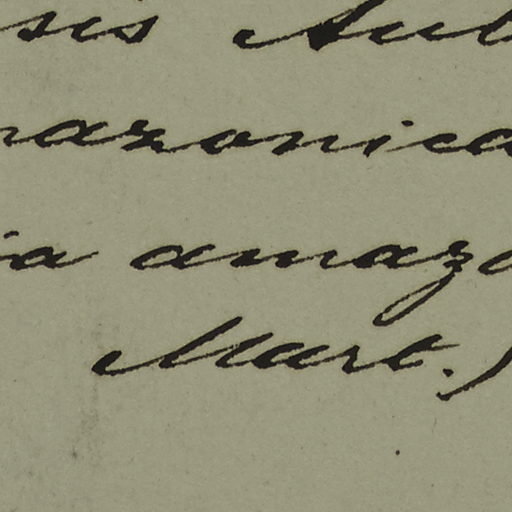 sis Aub
mazonica
ia amazo
Mart.)